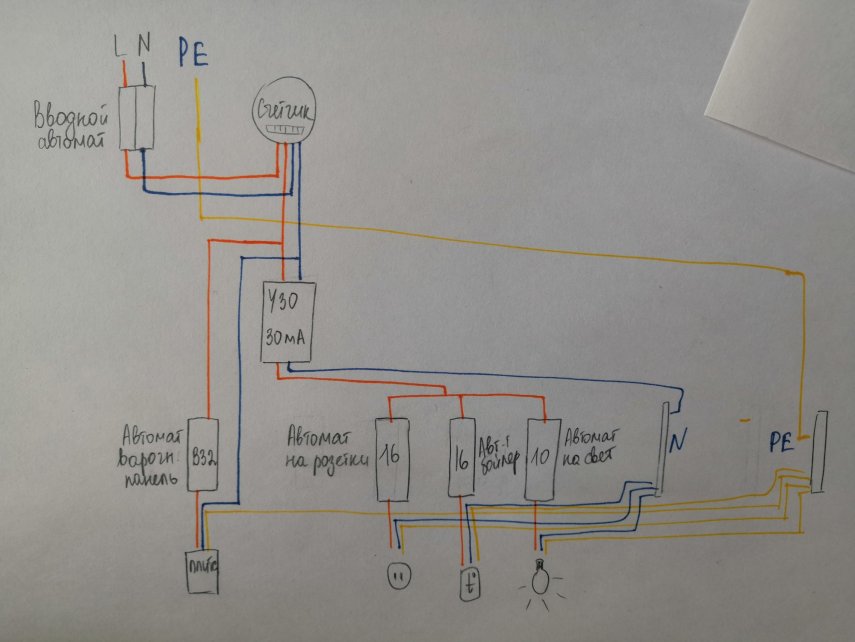 L N PE
Вводной
автомат
Счетчик
УЗО
30мА
Автомат
варочн.
панель
B32
Автомат
на розетки
16
16
Авт.т
бойлер
10
Автомат
на свет
N
PE
плита
t°